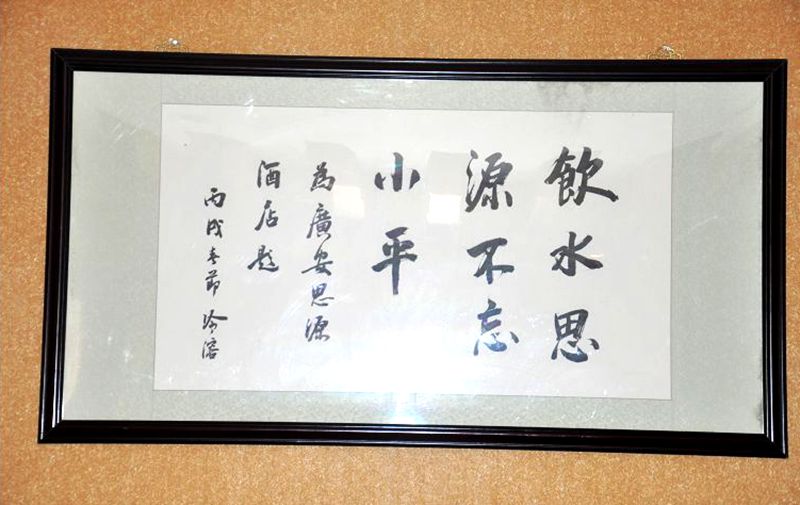 飲水思
源不忘
小平
為廣安思源
酒店題
丙戌春節 冷溶